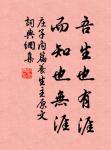 吾生也有涯
而知也無涯
庄子內篇養生主原文
詞典網集